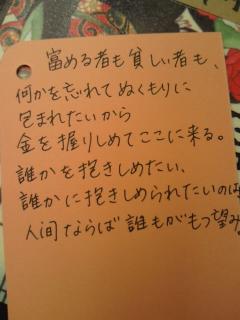 富める者も貧しい者も、
何かを忘れてぬくもりに
包まれたいから
金を握りしめてここに来る。
誰かを抱きしめたい、
誰かに抱きしめられたいのは
人間ならば誰もがもつ望み